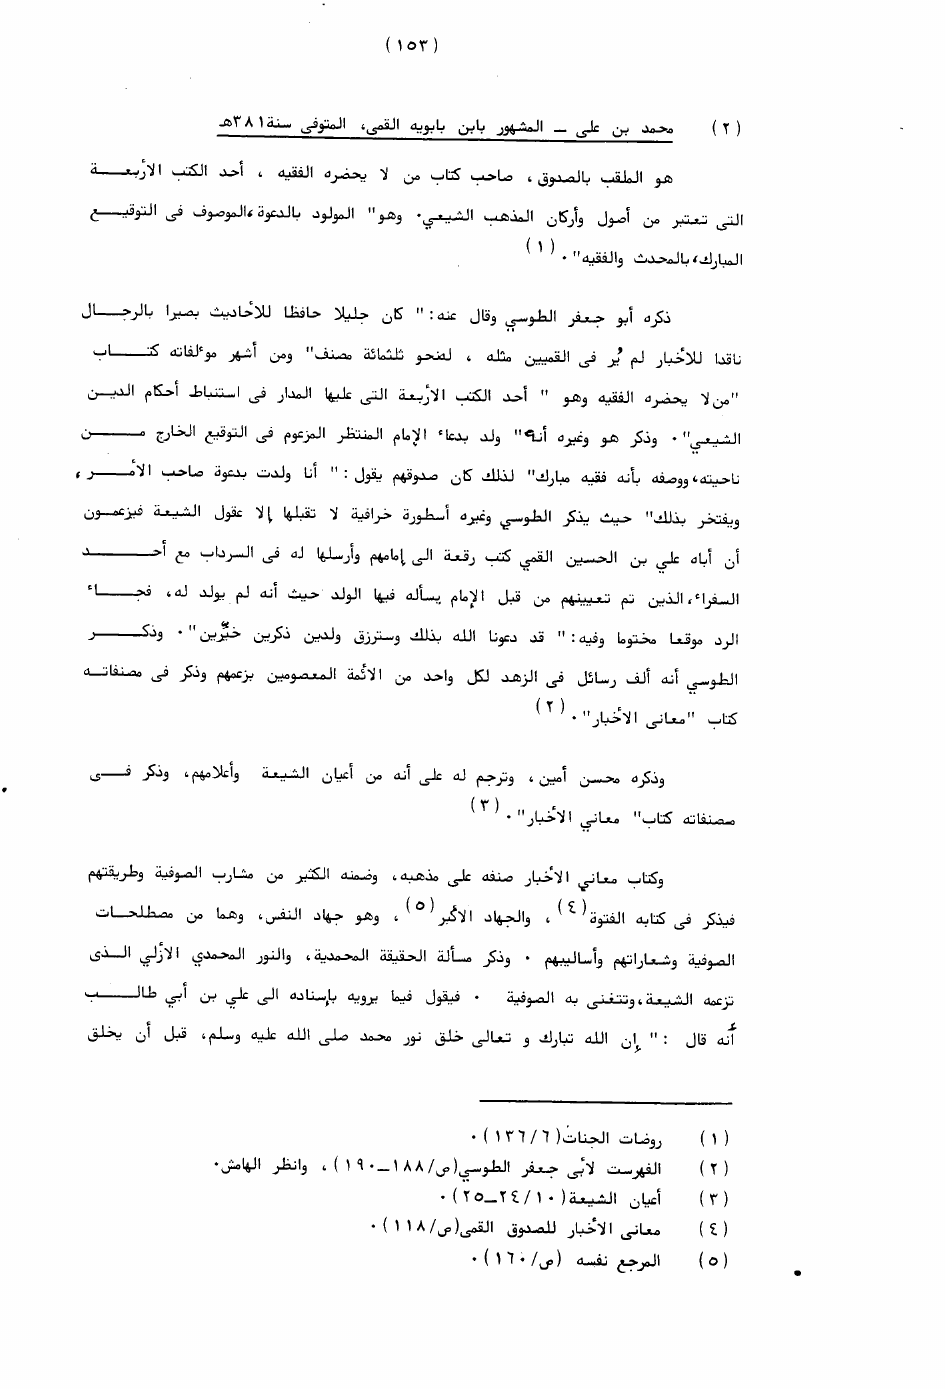 (١٥٣)
(٢) محمد بن على ـ المشهور بابن بابويه القمى، المتوفى سنة ٣٨١هـ
هو الملقب بالصدوق، صاحب كتاب من لا يحضره الفقيه ، أحد الكتب الأربعـــة
التى تعتبر من أصول وأركان المذهب الشيعي. وهو" المولود بالدعوة،الموصوف فى التوقيـــع
المبارك،بالمحدث والفقيه".(١)
ذكره أبو جعفر الطوسي وقال عنه:" كان جليلا حافظا للأحاديث بصيرا بالرجـــال
ناقدا للأخبار لم يُر فى القميين مثله ، لمنحو ثلثمائة مصنف" ومن أشهر موءلفاته كتـــاب
"من لا يحضره الفقيه وهو " أحد الكتب الأربعة التى عليها المدار فى استنباط أحكام الديـــن
الشيعي". وذكر هو وغيره أنه" ولد بدعاء الإمام المنتظر المزعوم فى التوقيع الخارج مـــن
ناحيته،ووصفه بأنه فقيه مبارك" لذلك كان صدوقهم يقول:" أنا ولدت بدعوة صاحب الأمـــر،
ويفتخر بذلك" حيث يذكر الطوسي وغيره أسطورة خرافية لا تقبلها إلا عقول الشيعة فيزعمـون
أن أباه علي بن الحسين القمي كتب رقعة الى إمامهم وأرسلها له فى السرداب مع أحـــــد
السفراء،الذين تم تعيينهم من قبل الإمام يسأله فيها الولد حيث أنه لم يولد له، فجـــاء
الرد موقعا مختوما وفيه:" قد دعونا الله بذلك وسترزق ولدين ذكرين خيِّرين". وذكـــــر
الطوسي أنه ألف رسائل فى الزهد لكل واحد من الأئمة المعصومين بزعمهم وذكر فى مصنفاتـه
كتاب "معانى الأخبار".(٢)
وذكره محسن أمين، وترجم له على أنه من أعيان الشيعة وأعلامهم، وذكر فـــى
مصنفاته كتاب" معاني الأخبار".(٣)
وكتاب معاني الأخبار صنفه على مذهبه، وضمنه الكثير من مشارب الصوفية وطريقتهم
فيذكر فى كتابه الفتوة(٤)، والجهاد الأكبر(٥)، وهو جهاد النفس، وهما من مصطلحـــات
الصوفية وشعاراتهم وأساليبهم . وذكر مسألة الحقيقة المحمدية، والنور المحمدي الأزلي الـــذى
تزعمه الشيعة،وتتغنى به الصوفية . فيقول فيما يرويه بإسناده الى علي بن أبي طالـــــب
أنه قال :" إن الله تبارك و تعالى خلق نور محمد صلى الله عليه وسلم، قبل أن يخلق
(١) روضات الجنات(١٣٦/٦).
(٢) الفهرست لأبى جعفر الطوسي(ص/١٨٨ـ١٩٠)، وانظر الهامش.
(٣) أعيان الشيعة(٢٤/١٠ـ٢٥).
(٤) معانى الأخبار للصدوق القمى(ص/١١٨).
(٥) المرجع نفسه (ص/١٦٠).